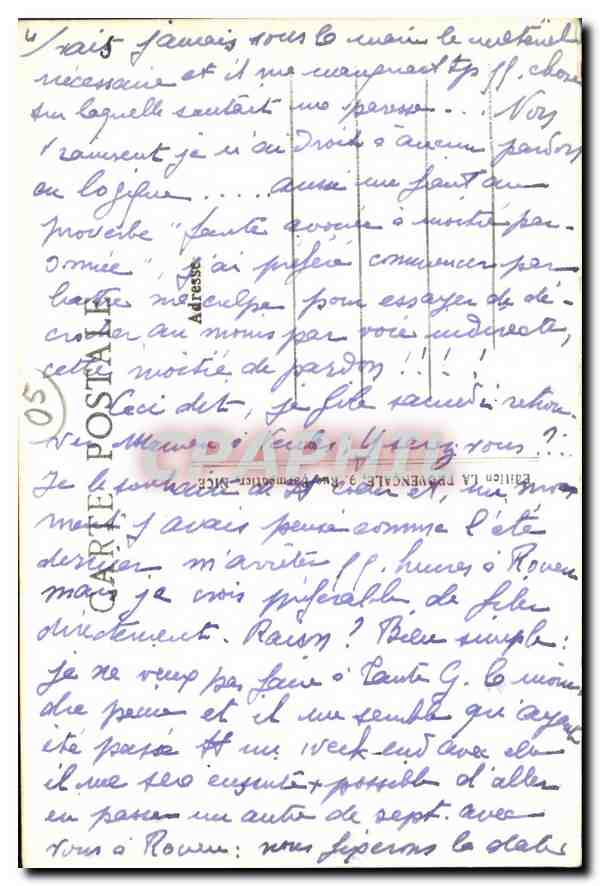 4/ vais jamais sous la main le matériel
nécessaire et il me manquait tjs qq. chose
sur laquelle sautait ma paresse... Vous
je n'ai droit à aucun pardon
en logique..... aussi me fiant au
proverbe "faute avouée à moitié par-
donnée" j'ai préféré commencer par
battre mea culpa pour essayer de dé-
crocher au moins par voie indirecte,
cette moitié de pardon!!!!
Ceci dit, je file samedi retrou-
ver Maman à Y serez vous??
Je le souhaite de tt cœur et, un mo-
ment j'avais pensé comme l'été
dernier m'arrêter qq. heures à Rouen
mais je crois préférable de filer
directement. Raison? Bien simple:
je ne veux pas faire à Tante G. la moin-
dre peine et il me semble qu'ayant
été passé tt un week-end avec elle
il me sera ensuite + possible d'aller
en passer un autre de sept. avec
vous à Rouen: nous fixerons la date
CARTE POSTALE
Adresse
Edition LA PROVENÇALE, 9, Rue Parmentier NICE
05
CPAPHIL